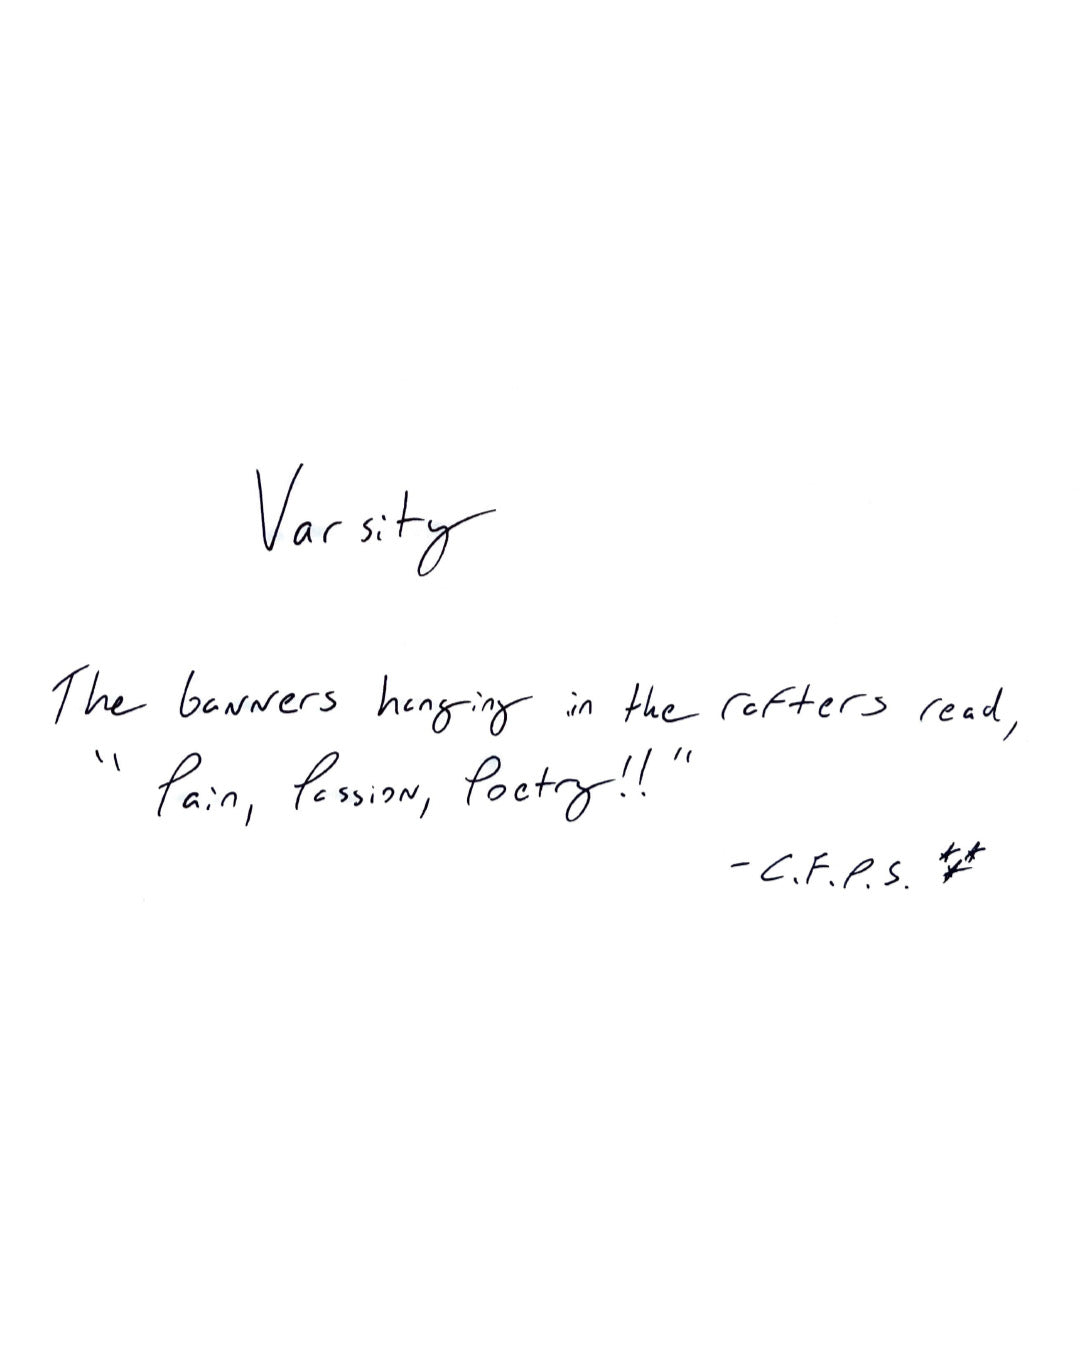 Varsity
The banners hanging in the rafters read,
"Pain, Passion, Poetry!!"
-C.F.P.S.